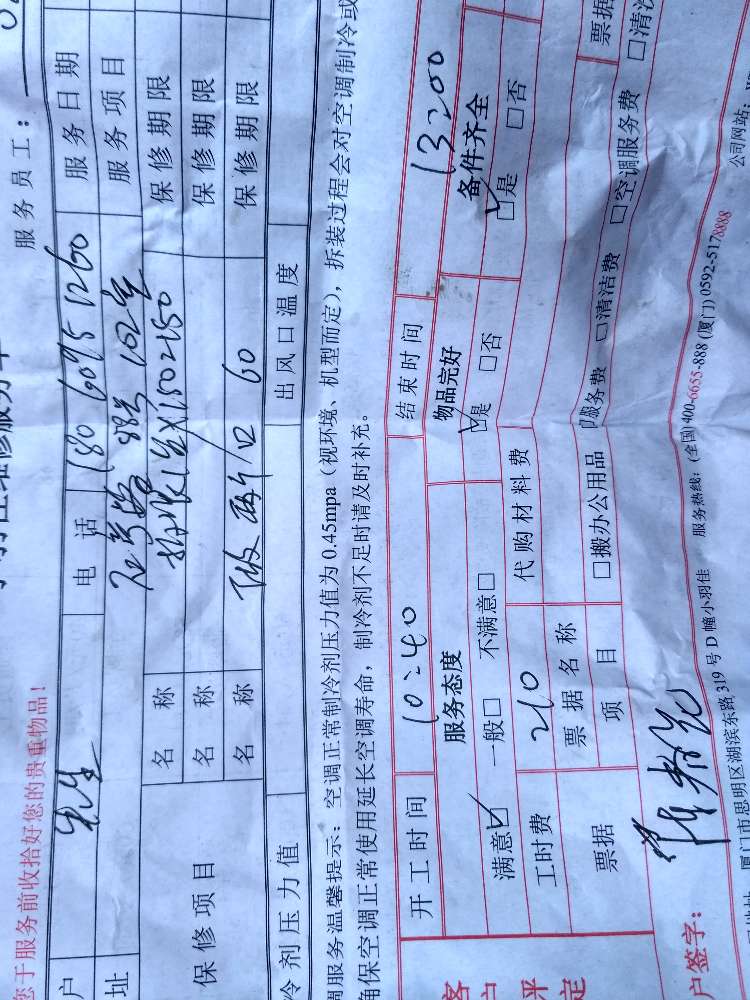 您于服务前收拾好您的贵重物品！
服务员工：
户 先生 电话 180 6095 1260 服务日期
址 88号 102室 服务项目
保修项目 名称 保修期限
名称 保修期限
名称 60 保修期限
冷剂压力值 出风口温度
调服务温馨提示：空调正常制冷剂压力值为0.45mpa（视环境、机型而定），拆装过程会对空调制冷或
确保空调正常使用延长空调寿命，制冷剂不足时请及时补充。
开工时间 10:40 结束时间 13:00
服务态度 物品完好 备件齐全
满意☑ 一般□ 不满意□ ☑是 □否 ☑是 □否
工时费 210 代购材料费
票据 票据名称 票据
项目 □搬办公用品 服务费 □清洁费 □空调服务费 □清洗
户签字：
厦门市思明区湖滨东路319号D幢小羽佳 服务热线：(全国)400-6655-888 (厦门)0592-5178888 公司网站：